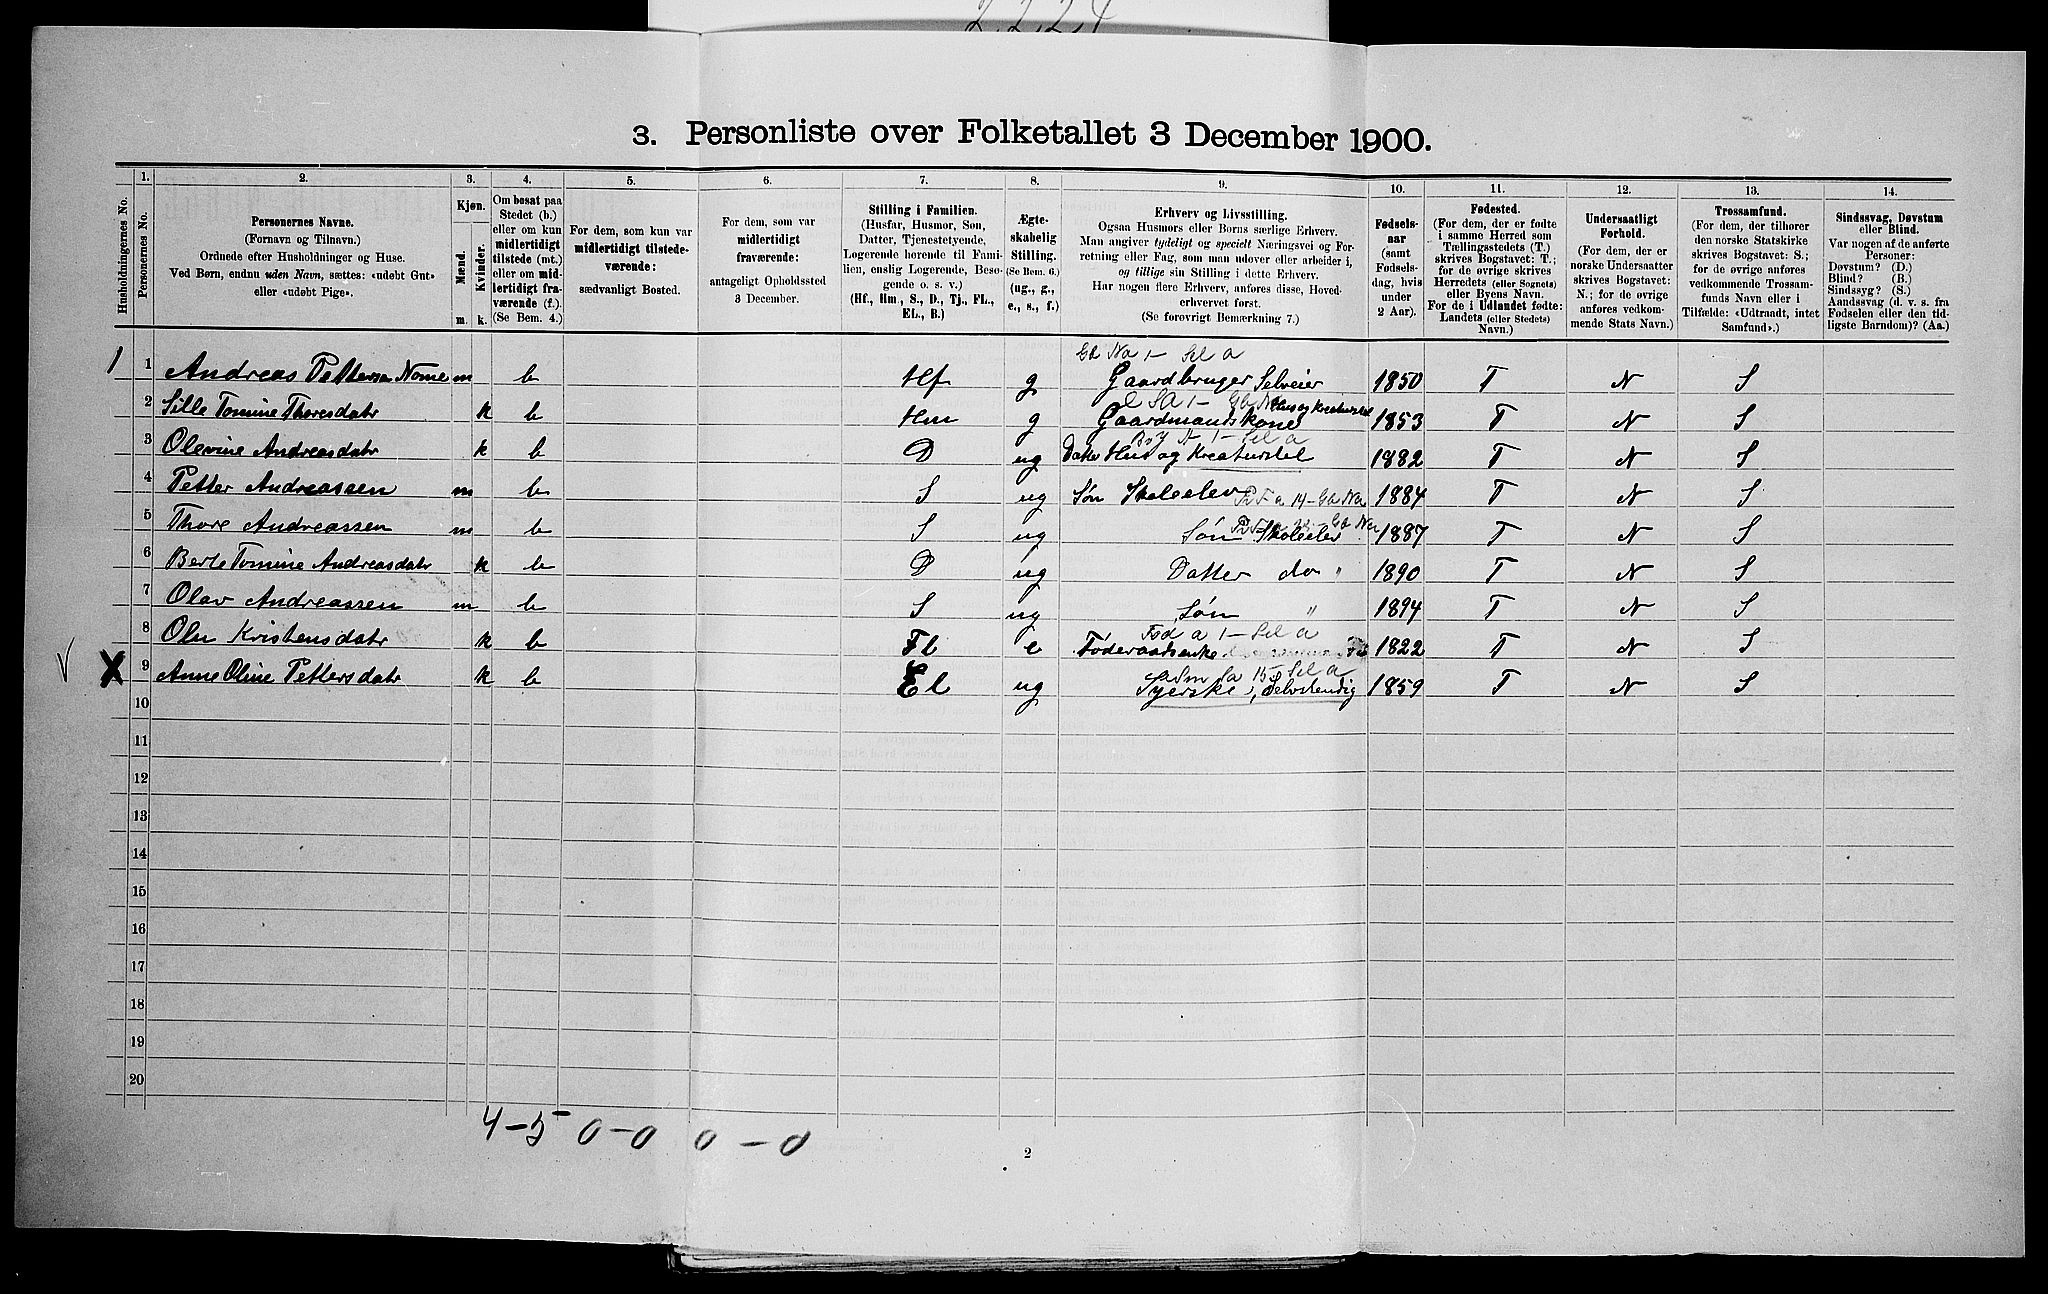 2224
3. Personliste over Folketallet 3 December 1900.
1. 2. 3. 4. 5. 6. 7. 8. 9. 10. 11. 12. 13. 14.
Husholdningernes No.
Personernes No.
Personernes Navne.
(Fornavn og Tilnavn.)
Ordnede efter Husholdninger og Huse.
Ved Børn, endnu uden Navn, sættes: «udøbt Gut»
eller «udøbt Pige».
Kjøn.
Mænd.
Kvinder.
m. k.
Om bosat paa
Stedet (b.)
eller om kun
midlertidigt
tilstede (mt.)
eller om mid-
lertidigt fra-
værende (f.).
(Se Bem. 4.)
For dem, som kun var
midlertidigt tilstede-
værende:
sædvanligt Bosted.
For dem, som var
midlertidigt
fraværende:
antageligt Opholdssted
3 December.
Stilling i Familien.
(Husfar, Husmor, Søn,
Datter, Tjenestetyende,
Logerende hørende til Fami-
lien, enslig Logerende, Besø-
gende o. s. v.)
(Hf., Hm., S., D., Tj., FL.,
EL., B.)
Ægte-
skabelig
Stilling.
(Se Bem. 6.)
(ug., g.,
e., s., f.)
Erhverv og Livsstilling.
Ogsaa Husmors eller Børns særlige Erhverv.
Man angiver tydeligt og specielt Næringsvei og For-
retning eller Fag, som man udøver eller arbeider i,
og tillige sin Stilling i dette Erhverv.
Har nogen flere Erhverv, anføres disse, Hoved-
erhvervet først.
(Se forøvrigt Bemærkning 7.)
Fødsels-
aar
(samt
Fødsels-
dag, hvis
under
2 Aar).
Fødested.
(For dem, der er fødte
i samme Herred som
Tællingsstedets (T.)
skrives Bogstavet: T.;
for de øvrige skrives
Herredets (eller Sognets)
eller Byens Navn.
For de i Udlandet fødte:
Landets (eller Stedets)
Navn.)
Undersaatligt
Forhold.
(For dem, der er
norske Undersaatter
skrives Bogstavet:
N.; for de øvrige
anføres vedkom-
mende Stats Navn.)
Trossamfund.
(For dem, der tilhører
den norske Statskirke
skrives Bogstavet: S.;
for de øvrige anføres
vedkommende Trossam-
funds Navn eller i
Tilfælde: «Udtraadt, intet
Samfund».)
Sindssvag, Døvstum
eller Blind.
Var nogen af de anførte
Personer:
Døvstum? (D.)
Blind? (B.)
Sindssyg? (S.)
Aandssvag (d. v. s. fra
Fødselen eller den tid-
ligste Barndom)? (Aa.)
1 1 Andreas Petterson Nome m b Hf g Gaardbruger Selveier 1850 T N S
2 Sille Tomine Thoresdatr k b Hm g Gaardmandskone Hus og Kreaturstel 1853 T N S
3 Olevine Andreasdatr k b D ug Datter Hus og Kreaturstel 1882 T N S
4 Petter Andreassen m b S ug Søn Skoleelev 1884 T N S
5 Thore Andreassen m b S ug Søn Skoleelev 1887 T N S
6 Berte Tomine Andreasdatr k b D ug Datter do 1890 T N S
7 Olav Andreassen m b S ug Søn " 1894 T N S
8 Olu Kristensdatr k b Fl e Føderaadsenke 1822 T N S
V X 9 Anne Oline Pettersdatr k b El ug Syerske, Selvstendig 1859 T N S
10
11
12
13
14
15
16
17
18
19
20
4-5 0-0 0-0
2